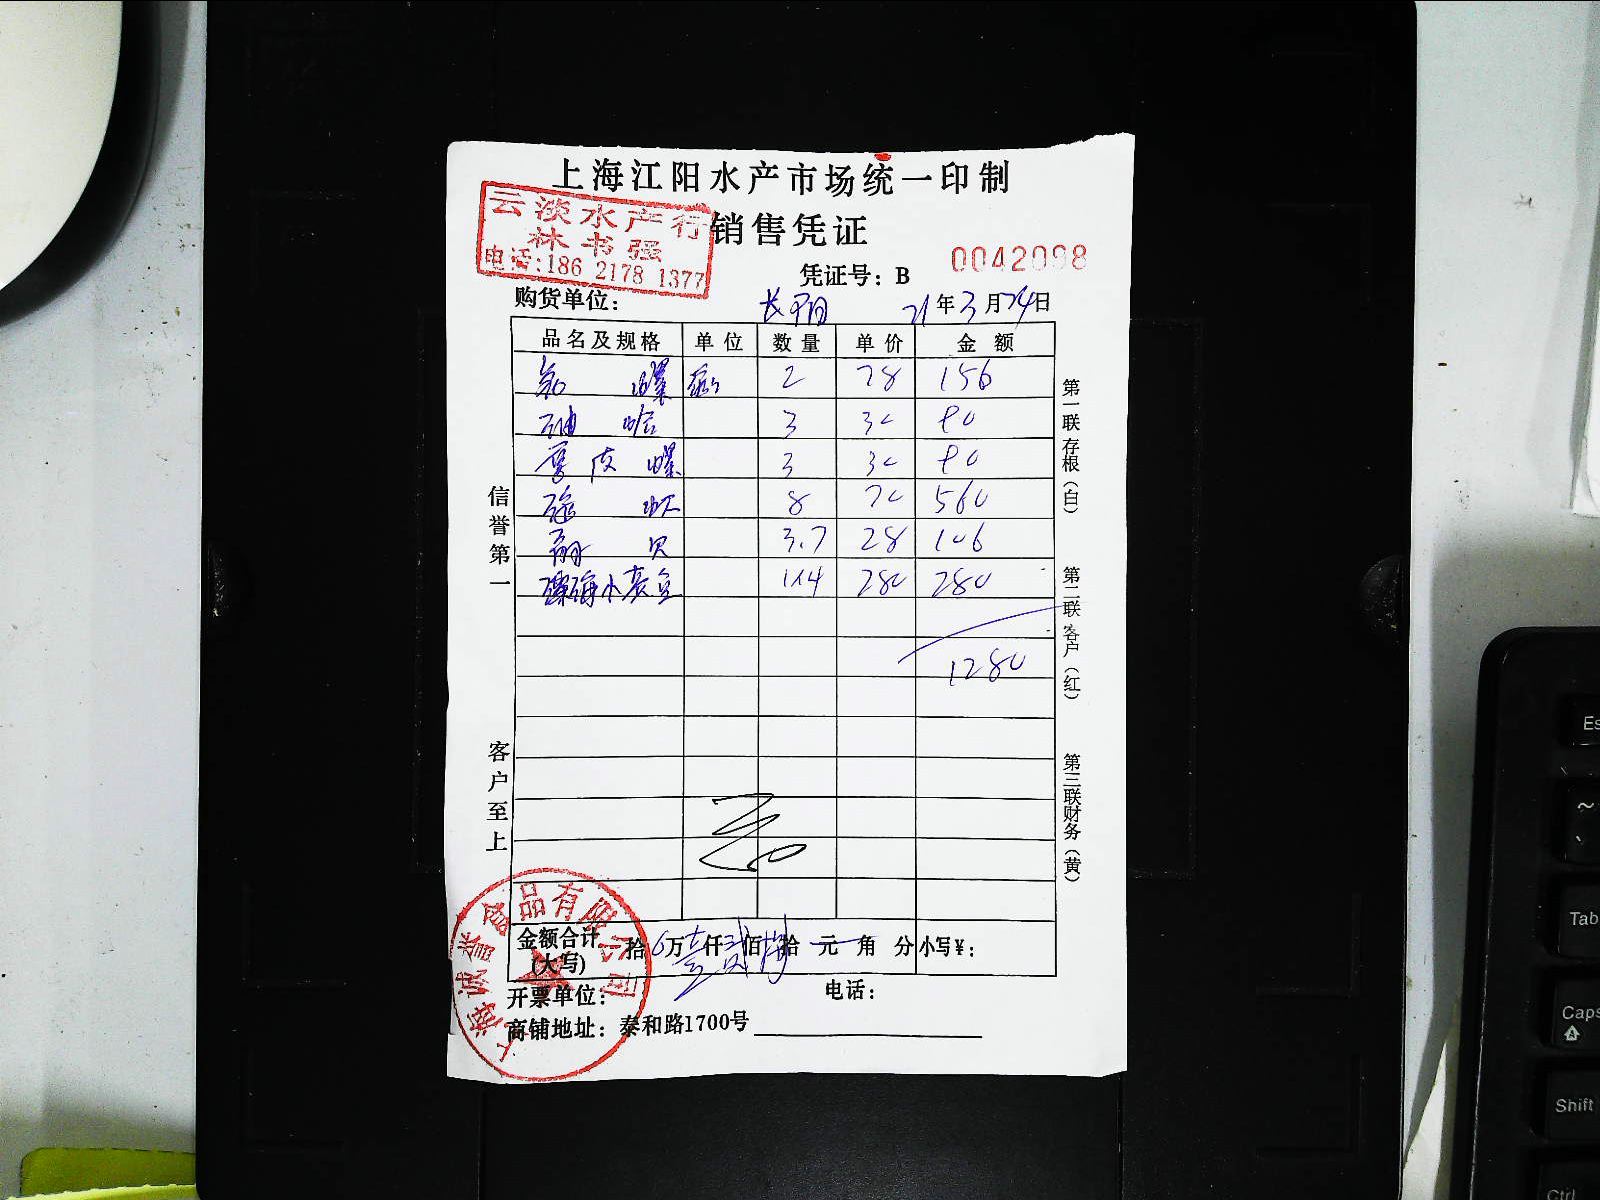 上海江阳水产市场统一印制
云淡水产行
林书强
电话:186 2178 1377
销售凭证
凭证号：B 0042098
购货单位： 长阳 21年3月24日
品名及规格 单位 数量 单价 金额
螺 2 78 156
油蛤 3 30 90
皮螺 3 30 90
8 70 560
贝 3.7 28 106
小 280 280
1280
信誉第一
客户至上
第一联存根（白）
第二联客户（红）
第三联财务（黄）
金额合计(大写) 拾 万壹仟贰佰捌拾元 角 分 小写¥：
开票单位： 电话：
商铺地址：泰和路1700号
上海诚誉食品有限公司
Es
Tab
Caps
Shift
Ctrl